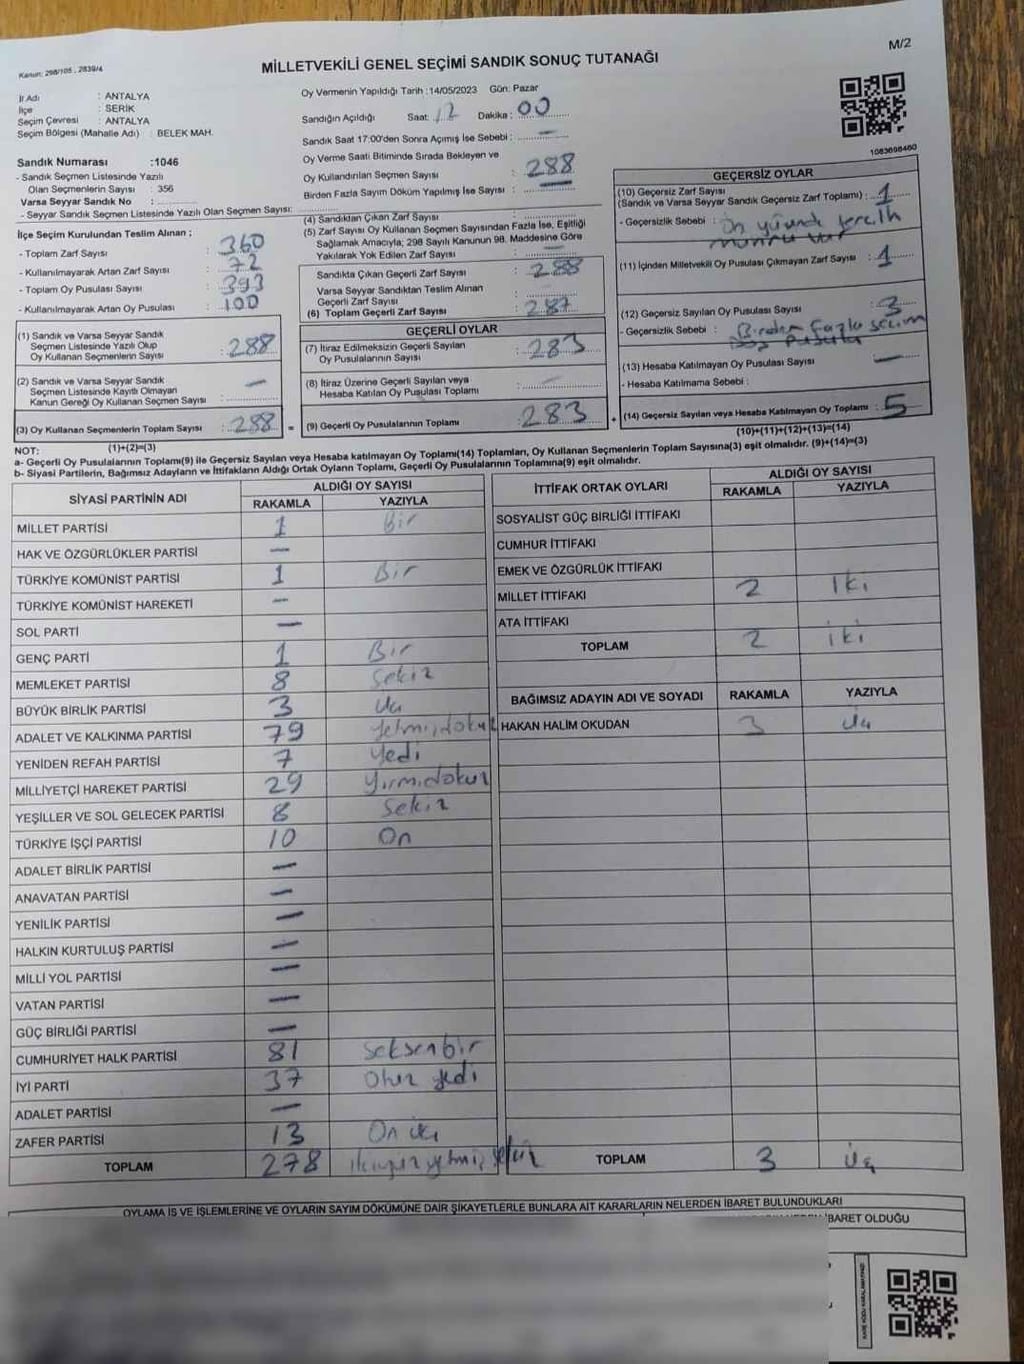 Kanun: 298/105 , 2839/4
MİLLETVEKİLİ GENEL SEÇİMİ SANDIK SONUÇ TUTANAĞI
M/2
İl Adı : ANTALYA
İlçe : SERİK
Seçim Çevresi : ANTALYA
Seçim Bölgesi (Mahalle Adı) : BELEK MAH.
Sandık Numarası :1046
- Sandık Seçmen Listesinde Yazılı
Olan Seçmenlerin Sayısı : 356
Varsa Seyyar Sandık No :
- Seyyar Sandık Seçmen Listesinde Yazılı Olan Seçmen Sayısı:
Oy Vermenin Yapıldığı Tarih :14/05/2023 Gün: Pazar
Sandığın Açıldığı Saat: Dakika: 00
Sandık Saat 17:00'den Sonra Açımış İse Sebebi : —
Oy Verme Saati Bitiminde Sırada Bekleyen ve
Oy Kullandırılan Seçmen Sayısı : 288
Birden Fazla Sayım Döküm Yapılmış İse Sayısı : —
1083698460
İlçe Seçim Kurulundan Teslim Alınan ;
- Toplam Zarf Sayısı : 360
- Kullanılmayarak Artan Zarf Sayısı : 72
- Toplam Oy Pusulası Sayısı : 393
- Kullanılmayarak Artan Oy Pusulası : 100
(1) Sandık ve Varsa Seyyar Sandık
Seçmen Listesinde Yazılı Olup
Oy Kullanan Seçmenlerin Sayısı : 288
(2) Sandık ve Varsa Seyyar Sandık
Seçmen Listesinde Kayıtlı Olmayan
Kanun Gereği Oy Kullanan Seçmen Sayısı : —
(3) Oy Kullanan Seçmenlerin Toplam Sayısı : 288 =
(4) Sandıktan Çıkan Zarf Sayısı :
(5) Zarf Sayısı Oy Kullanan Seçmen Sayısından Fazla İse, Eşitliği
Sağlamak Amacıyla; 298 Sayılı Kanunun 98. Maddesine Göre
Yakılarak Yok Edilen Zarf Sayısı : —
Sandıkta Çıkan Geçerli Zarf Sayısı : 288
Varsa Seyyar Sandıktan Teslim Alınan
Geçerli Zarf Sayısı :
(6) Toplam Geçerli Zarf Sayısı : 287
GEÇERLİ OYLAR
(7) İtiraz Edilmeksizin Geçerli Sayılan
Oy Pusulalarının Sayısı : 283
(8) İtiraz Üzerine Geçerli Sayılan veya
Hesaba Katılan Oy Pusulası Toplamı : —
(9) Geçerli Oy Pusulalarının Toplamı : 283 +
GEÇERSİZ OYLAR
(10) Geçersiz Zarf Sayısı
(Sandık ve Varsa Seyyar Sandık Geçersiz Zarf Toplamı) : 1
- Geçersizlik Sebebi : Ön yüzünde tercih
mührü var
(11) İçinden Milletvekili Oy Pusulası Çıkmayan Zarf Sayısı : 1
(12) Geçersiz Sayılan Oy Pusulası Sayısı : 3
- Geçersizlik Sebebi : Birden fazla seçim
(13) Hesaba Katılmayan Oy Pusulası Sayısı : —
- Hesaba Katılmama Sebebi :
(14) Geçersiz Sayılan veya Hesaba Katılmayan Oy Toplamı : 5
(10)+(11)+(12)+(13)=(14)
NOT: (1)+(2)=(3)
a- Geçerli Oy Pusulalarının Toplamı(9) ile Geçersiz Sayılan veya Hesaba katılmayan Oy Toplamı(14) Toplamları, Oy Kullanan Seçmenlerin Toplam Sayısına(3) eşit olmalıdır. (9)+(14)=(3)
b- Siyasi Partilerin, Bağımsız Adayların ve İttifakların Aldığı Ortak Oyların Toplamı, Geçerli Oy Pusulalarının Toplamına(9) eşit olmalıdır.
SİYASİ PARTİNİN ADI ALDIĞI OY SAYISI
RAKAMLA YAZIYLA
MİLLET PARTİSİ 1 Bir
HAK VE ÖZGÜRLÜKLER PARTİSİ —
TÜRKİYE KOMÜNİST PARTİSİ 1 Bir
TÜRKİYE KOMÜNİST HAREKETİ —
SOL PARTİ —
GENÇ PARTİ 1 Bir
MEMLEKET PARTİSİ 8 Sekiz
BÜYÜK BİRLİK PARTİSİ 3 Üç
ADALET VE KALKINMA PARTİSİ 79 Yetmişdokuz
YENİDEN REFAH PARTİSİ 7 Yedi
MİLLİYETÇİ HAREKET PARTİSİ 29 Yirmidokuz
YEŞİLLER VE SOL GELECEK PARTİSİ 8 Sekiz
TÜRKİYE İŞÇİ PARTİSİ 10 On
ADALET BİRLİK PARTİSİ —
ANAVATAN PARTİSİ —
YENİLİK PARTİSİ —
HALKIN KURTULUŞ PARTİSİ —
MİLLİ YOL PARTİSİ —
VATAN PARTİSİ —
GÜÇ BİRLİĞİ PARTİSİ —
CUMHURİYET HALK PARTİSİ 81 Seksenbir
İYİ PARTİ 37 Otuz yedi
ADALET PARTİSİ —
ZAFER PARTİSİ 13 On üç
TOPLAM 278 ikiyüzyetmiş sekiz
İTTİFAK ORTAK OYLARI ALDIĞI OY SAYISI
RAKAMLA YAZIYLA
SOSYALİST GÜÇ BİRLİĞİ İTTİFAKI
CUMHUR İTTİFAKI
EMEK VE ÖZGÜRLÜK İTTİFAKI
MİLLET İTTİFAKI 2 İki
ATA İTTİFAKI
TOPLAM 2 iki
BAĞIMSIZ ADAYIN ADI VE SOYADI RAKAMLA YAZIYLA
HAKAN HALİM OKUDAN 3 Üç
TOPLAM 3 Üç
OYLAMA İŞ VE İŞLEMLERİNE VE OYLARIN SAYIM DÖKÜMÜNE DAİR ŞİKAYETLERLE BUNLARA AİT KARARLARIN NELERDEN İBARET BULUNDUKLARI
İBARET OLDUĞU